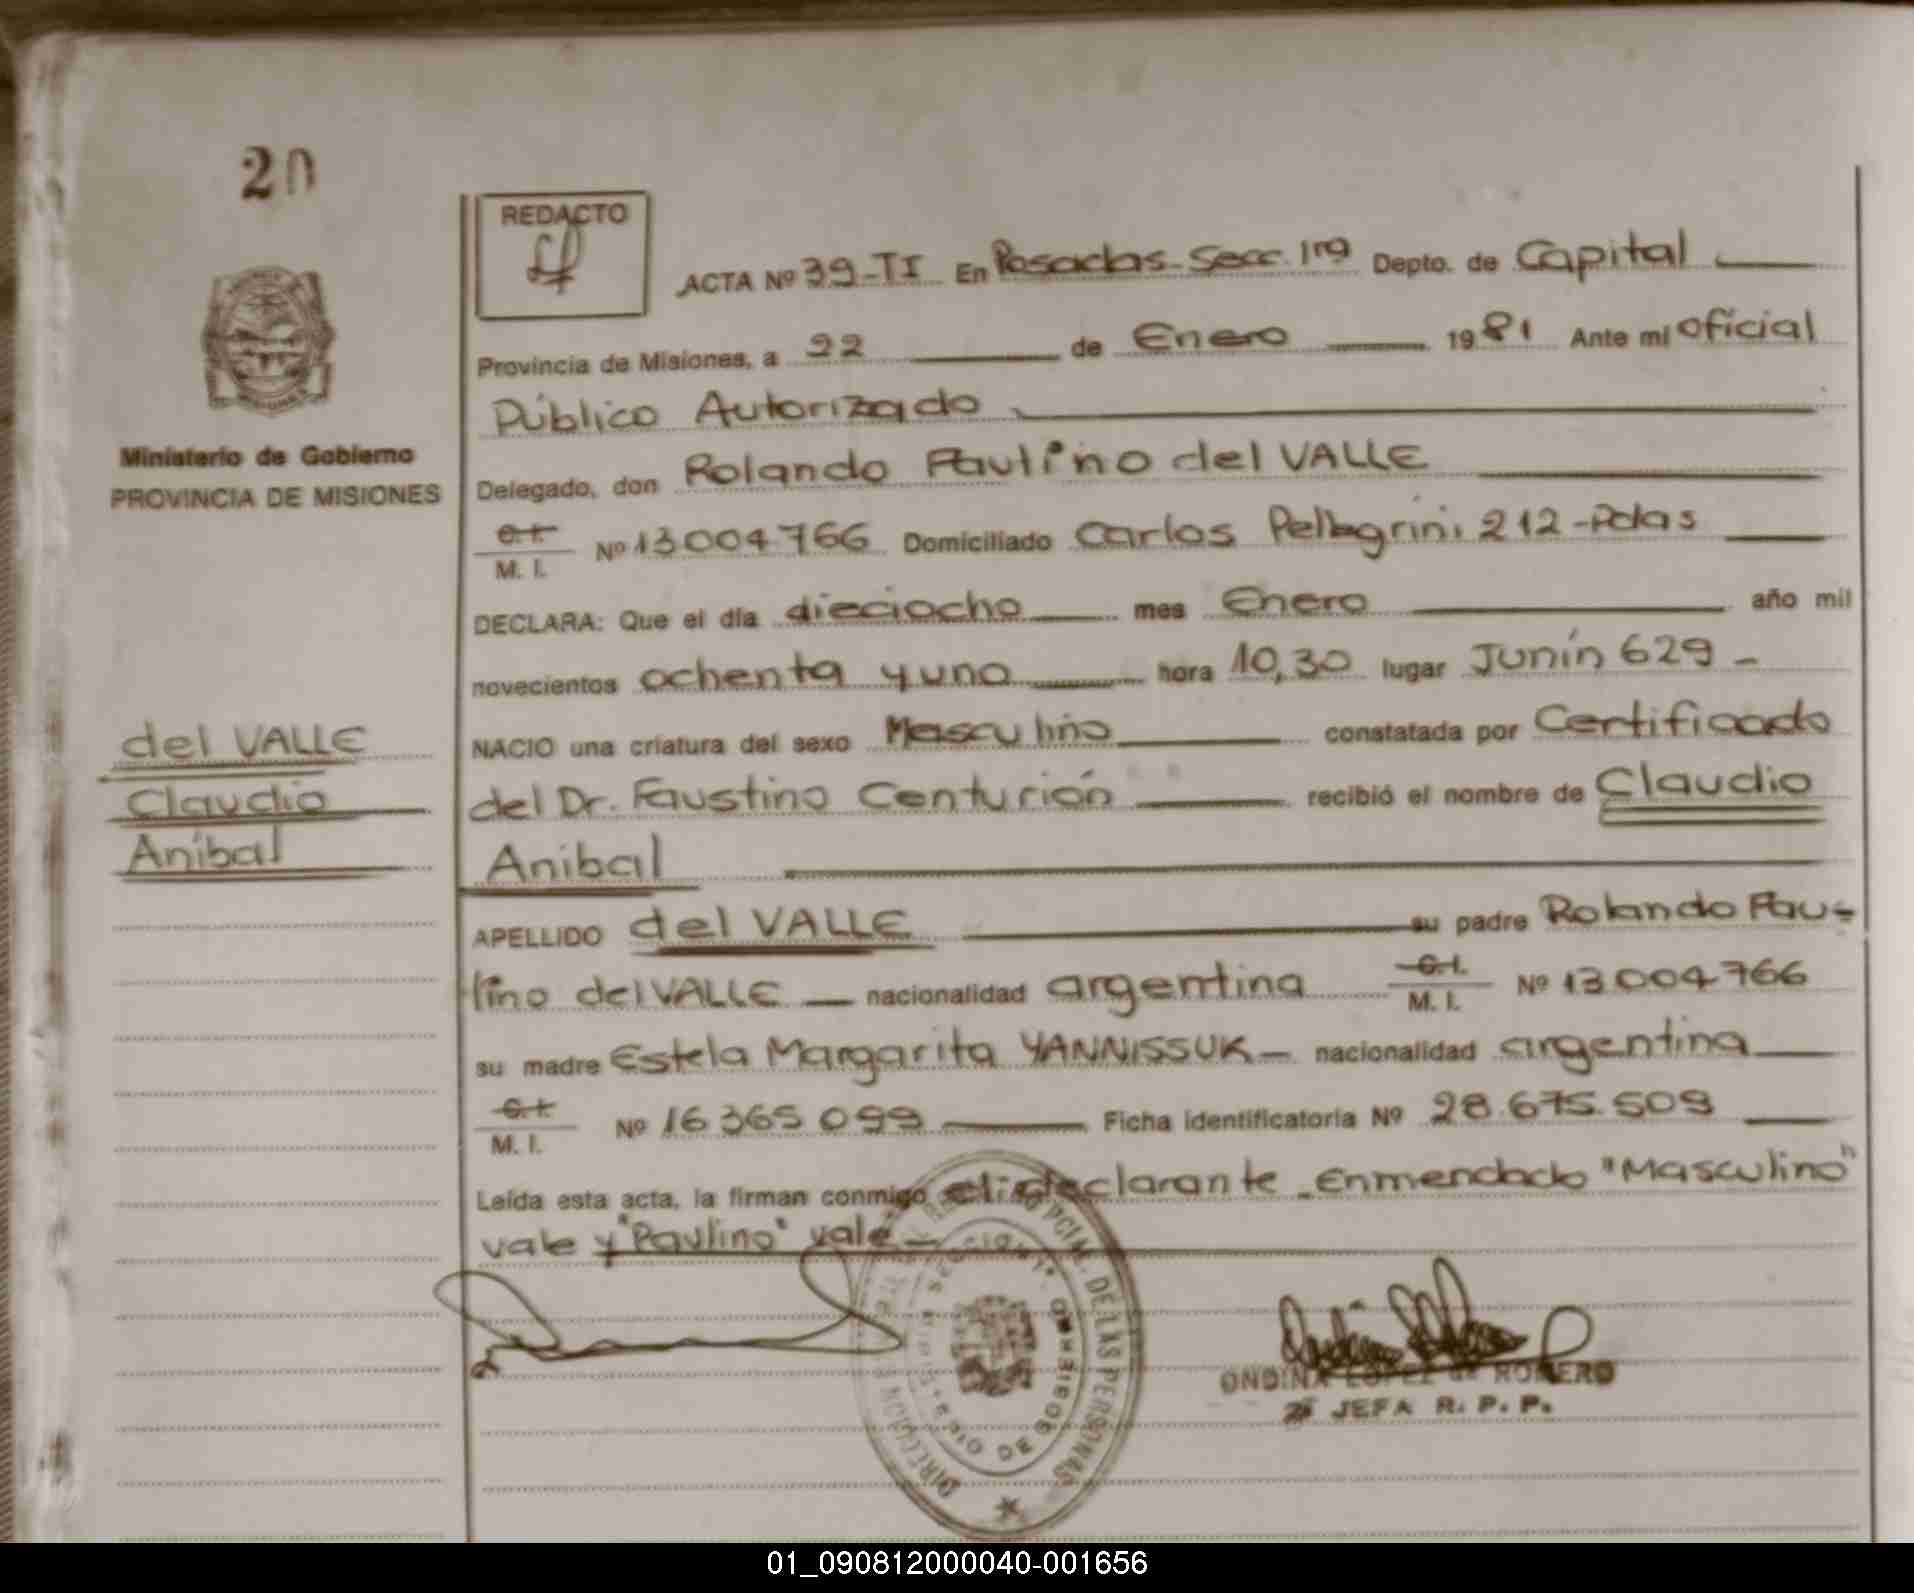 20
REDACTO
ACTA Nº 39-TI En Posadas Secc. 1ra Depto. de Capital
Provincia de Misiones, a 22 de Enero 1981 Ante mi oficial
Público Autorizado
Ministerio de Gobierno
PROVINCIA DE MISIONES
Delegado, don Rolando Paulino del VALLE
C.I. M. I. Nº 13004766 Domiciliado Carlos Pellegrini 212-Pdas
DECLARA: Que el día dieciocho mes Enero año mil
novecientos ochenta y uno hora 10,30 lugar Junín 629 -
del VALLE
Claudio
Aníbal
NACIO una criatura del sexo Masculino constatada por Certificado
del Dr. Faustino Centurión recibió el nombre de Claudio
Anibal
APELLIDO del VALLE su padre Rolando Pau-
lino del VALLE nacionalidad argentina C.I. M. I. Nº 13004766
su madre Estela Margarita YANNISSUK nacionalidad argentina
C.I. M. I. Nº 16365099 Ficha identificatoria Nº 28.675.509
Leída esta acta, la firman conmigo el declarante. Enmendado "Masculino"
vale y "Paulino" vale
DIRECCION REG. PCIAL. DE LAS PERSONAS
DE GOBIERNO
ONDINA LOPEZ de ROMERO
JEFA R. P. P.
01_090812000040-001656